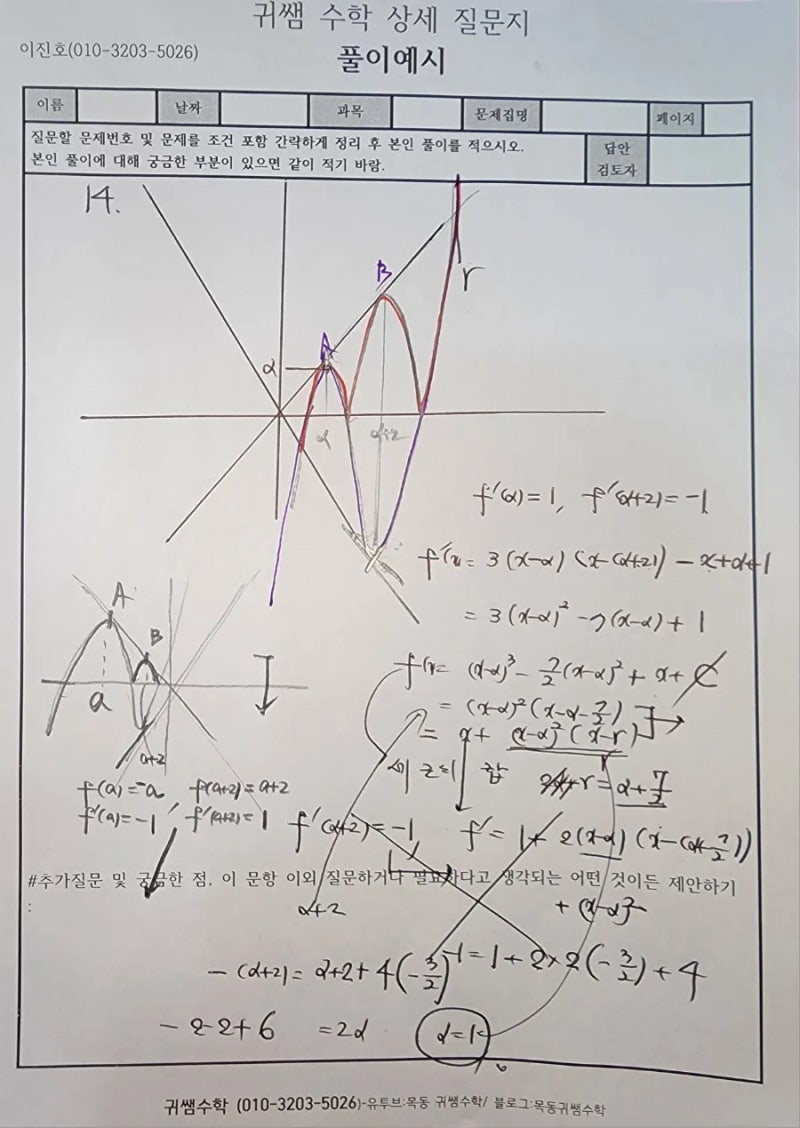 귀쌤 수학 상세 질문지
이진호(010-3203-5026)
풀이예시
이름 날짜 과목 문제집명 페이지
질문할 문제번호 및 문제를 조건 포함 간략하게 정리 후 본인 풀이를 적으시오.
본인 풀이에 대해 궁금한 부분이 있으면 같이 적기 바람.
답안
검토자
14.
B
r
A
α
α α+2
f'(α)=1, f'(α+2)=-1
f'(x)= 3(x-α)(x-(α+2)) -x+α+1
= 3(x-α)² -7(x-α)+1
A
B
a
a+2
f(x)= (x-α)³ - 7/2(x-α)² + x + C
= (x-α)²(x-α-7/2)
= x+ (x-α)²(x-r)
세 근의 합
r = α+7/2
f(a)=-a, f(a+2)=a+2
f'(a)=-1, f'(a+2)=1
f'(α+2)=-1 f'= 1+ 2(x-α)(x-(α+7/2))
+ (x-α)²
#추가질문 및 궁금한 점, 이 문항 이외 질문하거나 필요하다고 생각되는 어떤 것이든 제안하기
:
α+2
-(α+2)= α+2+4(-3/2) -1=1+2×2(-3/2)+4
-2-2+6 =2α α=1
귀쌤수학 (010-3203-5026)-유투브:목동 귀쌤수학/ 블로그:목동귀쌤수학